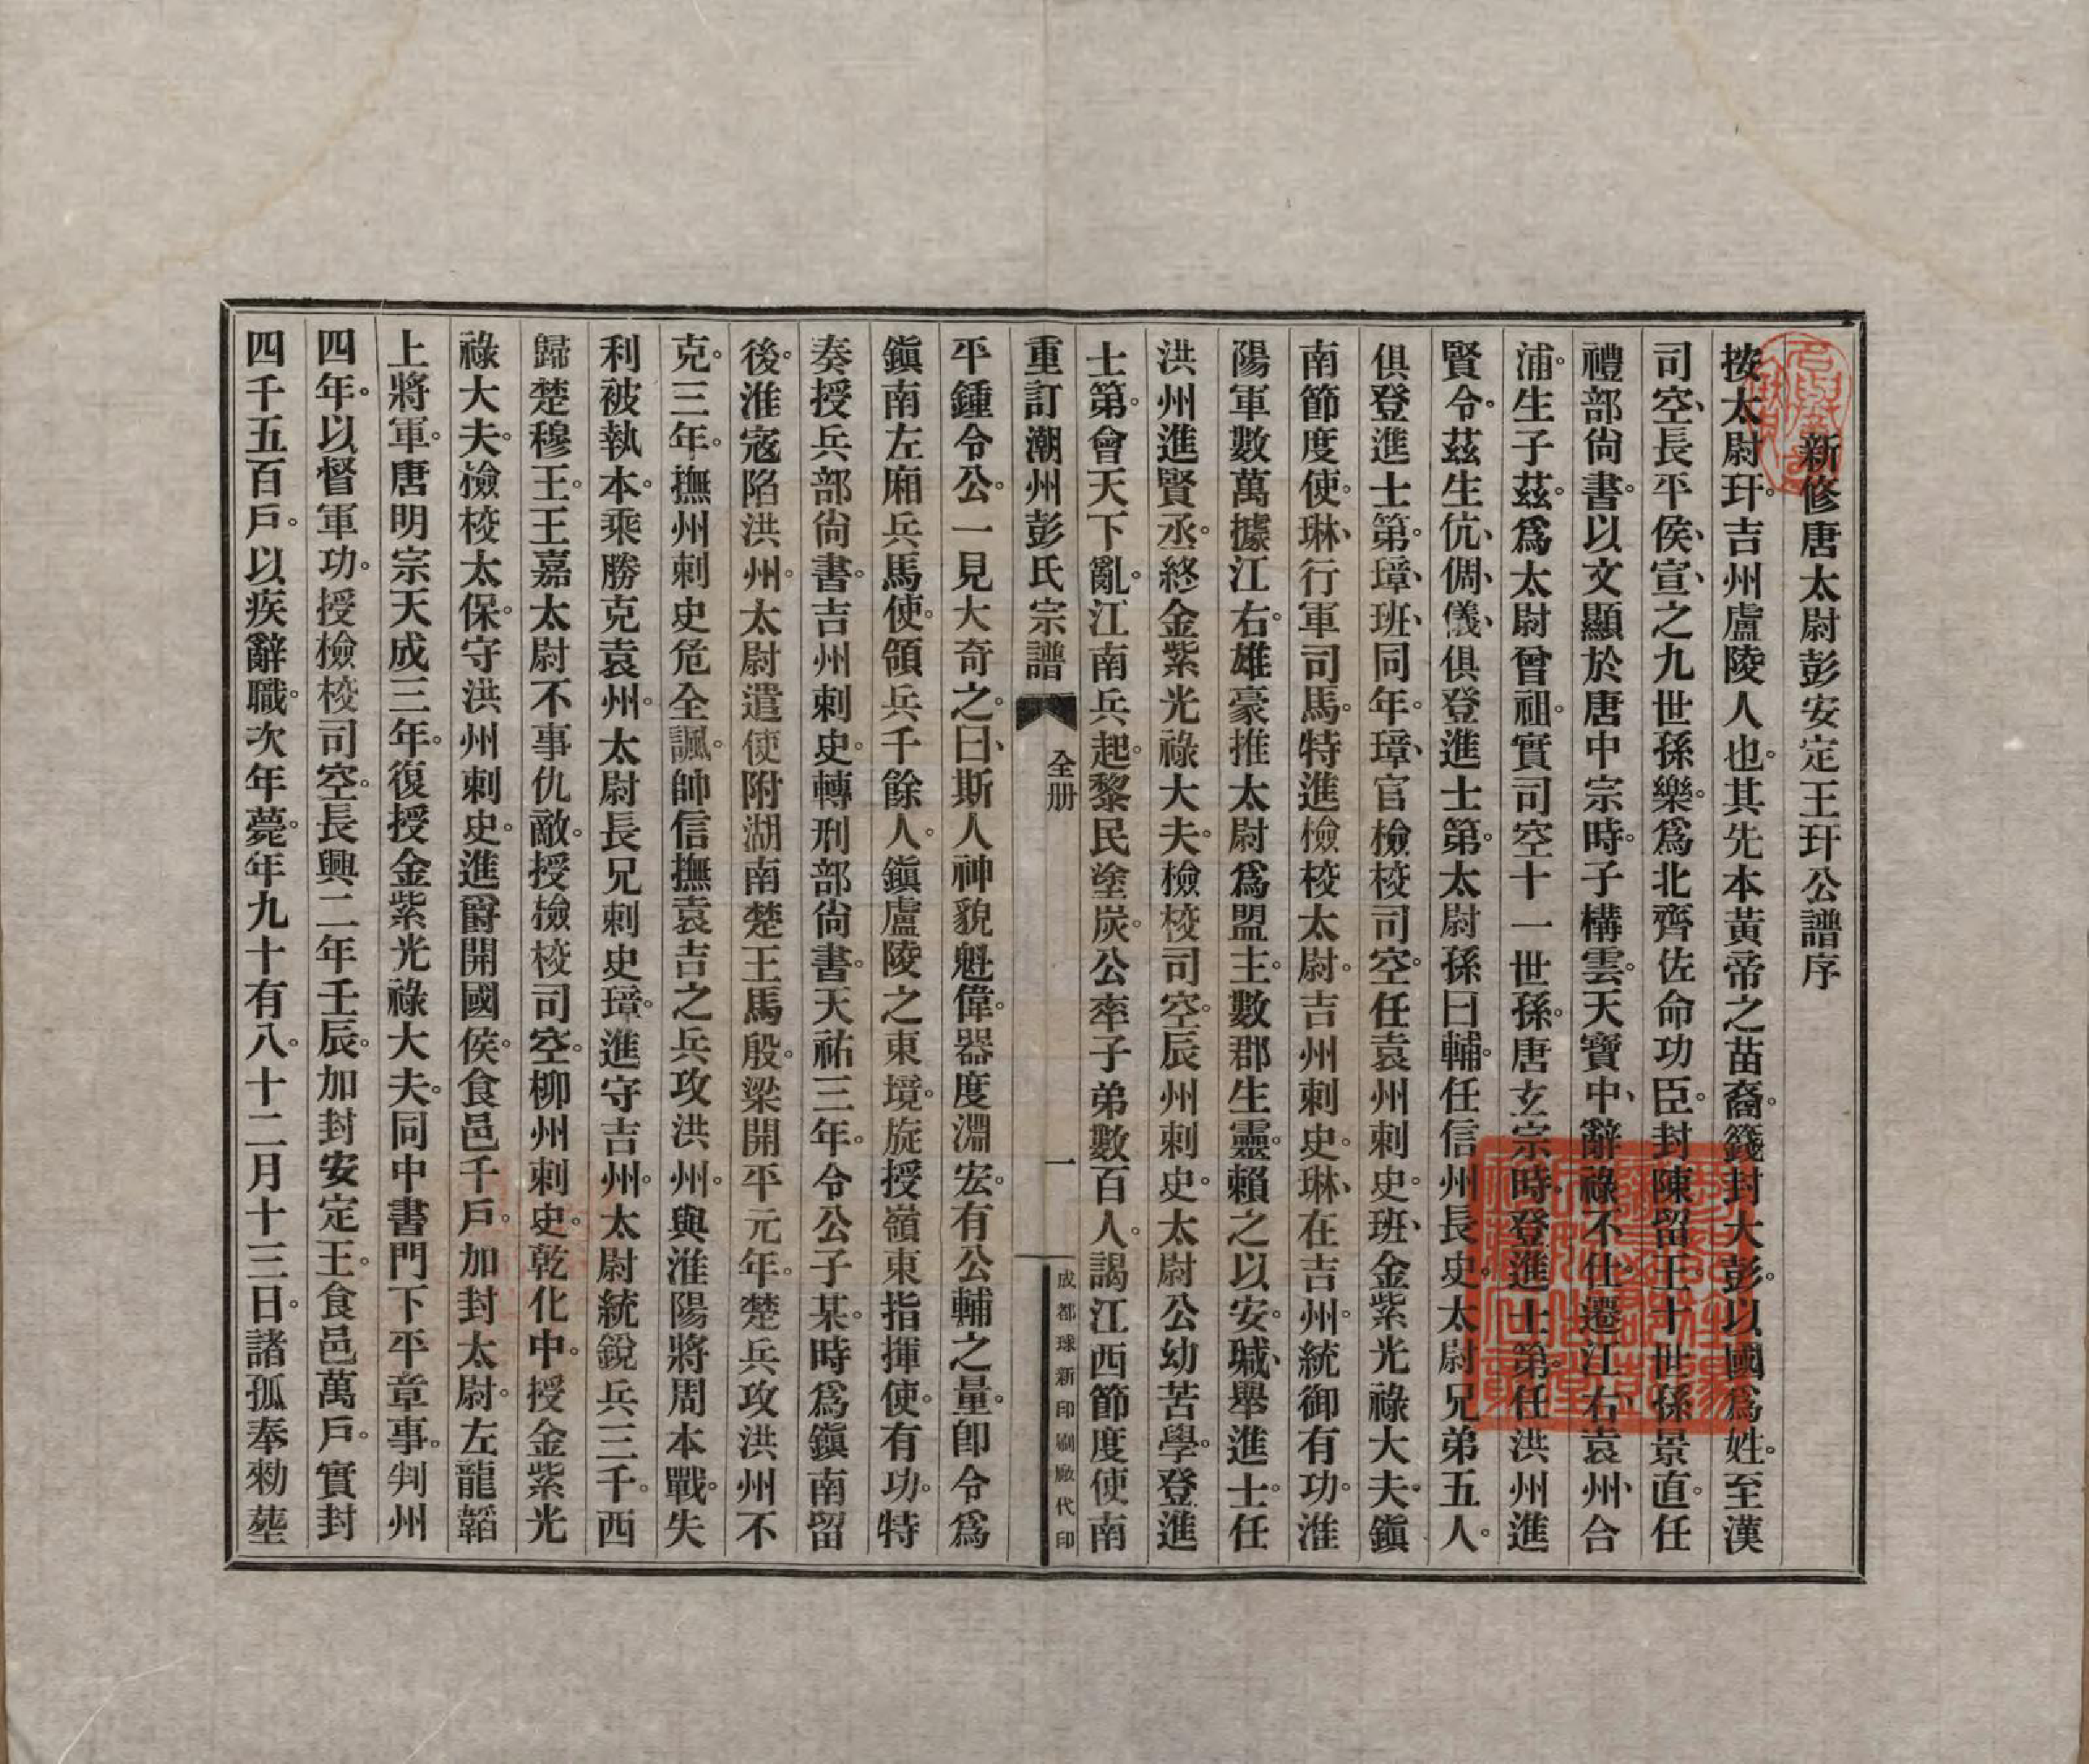 新修唐太尉彭安定王玕公譜序
按太尉玕。吉州盧陵人也。其先本黃帝之苗裔。籛封大彭。以國爲姓。至漢
司空、長平侯、宣、之九世孫樂。爲北齊佐命功臣。封陳留王。十世孫景直。任
禮部尙書。以文顯於唐中宗時。子構雲。天寶中、辭祿不仕。遷江右、袁州、合
浦。生子茲。爲太尉曾祖。實司空十一世孫。唐玄宗時。登進士第。任洪州進
賢令。茲生伉、倜、儀、俱登進士第。太尉孫曰輔。任信州長史。太尉兄弟五人。
俱登進士第。璋、班、同年。璋、官檢校司空。任袁州刺史。班、金紫光祿大夫。鎭
南節度使。琳、行軍司馬。特進檢校太尉。吉州刺史。琳、在吉州。統御有功。淮
陽軍數萬據江右。雄豪推太尉爲盟主。數郡生靈。賴之以安。瑊、舉進士。任
洪州進賢丞。終金紫光祿大夫。檢校司空。辰州刺史。太尉公幼苦學。登進
士第。會天下亂。江南兵起。黎民塗炭。公率子弟數百人。謁江西節度使南
重訂潮州彭氏宗譜 全册 一 成都球新印刷廠代印
平鍾令公。一見大奇之。曰、斯人神貌魁偉。器度淵宏。有公輔之量。卽令爲
鎭南左廂兵馬使。領兵千餘人。鎭盧陵之東境。旋授嶺東指揮使。有功。特
奏授兵部尙書。吉州刺史。轉刑部尙書。天祐三年。令公子某。時爲鎭南留
後。淮寇陷洪州。太尉遣使附湖南楚王馬殷。梁開平元年。楚兵攻洪州不
克。三年。撫州刺史危全諷。帥信撫袁吉之兵攻洪州。與淮陽將周本戰。失
利被執。本。乘勝克袁州。太尉長兄刺史璋。進守吉州。太尉統銳兵三千。西
歸楚穆王。王嘉太尉不事仇敵。授檢校司空。柳州刺史。乾化中。授金紫光
祿大夫。檢校太保。守洪州刺史。進爵開國侯。食邑千戶。加封太尉。左龍韜
上將軍。唐明宗天成三年。復授金紫光祿大夫。同中書門下平章事。判州
四年。以督軍功。授檢校司空。長興二年壬辰。加封安定王。食邑萬戶。實封
四千五百戶。以疾辭職。次年薨。年九十有八。十二月十三日。諸孤奉勅塟